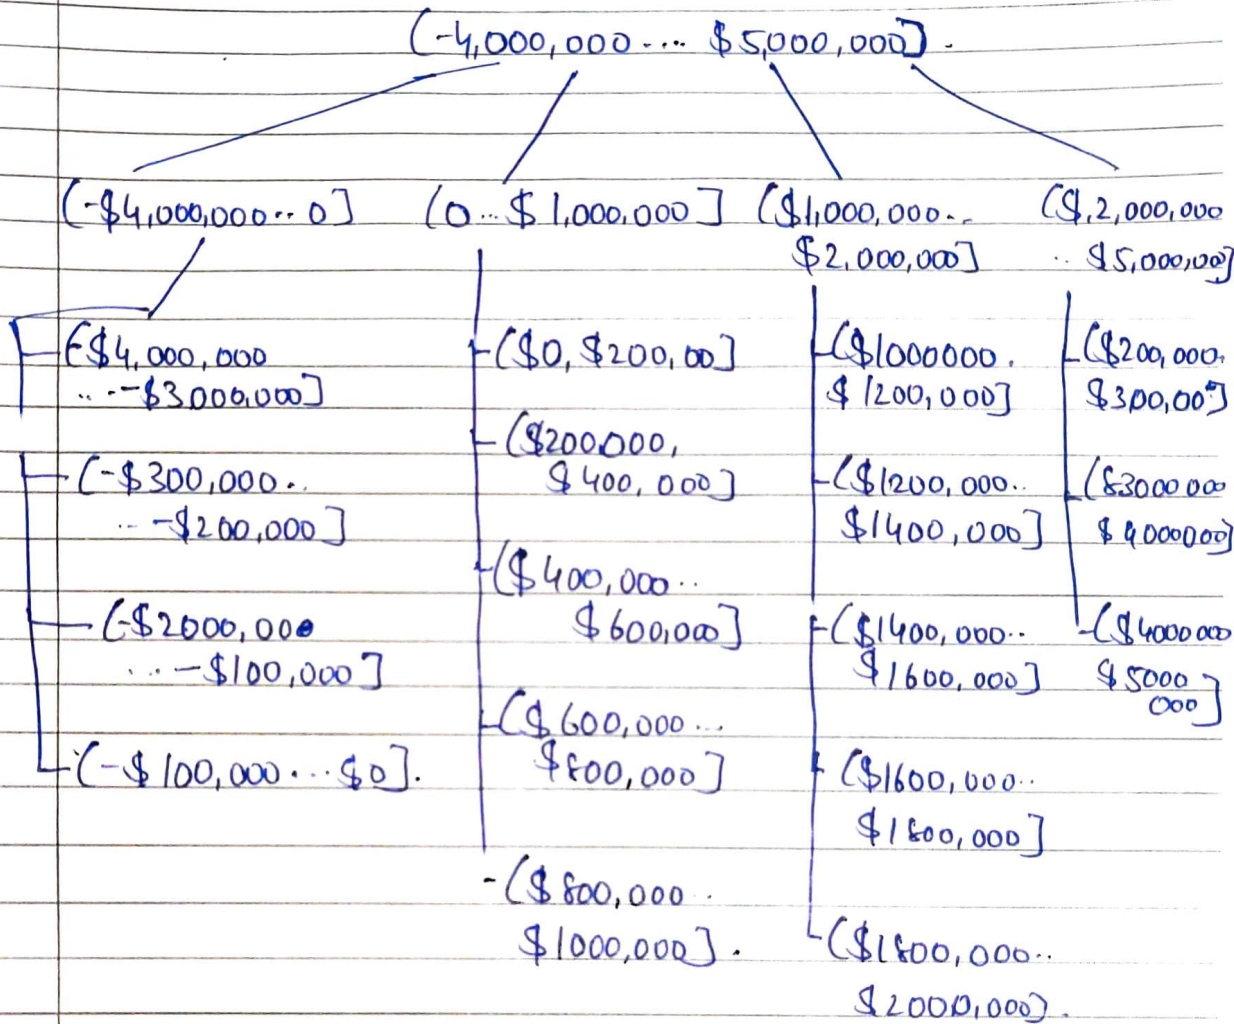 (-4,000,000 .... $5,000,000].
(-$4,000,000..0]
(0...$1,000,000]
($1,000,000..
$2,000,000]
($,2,000,000
.. $5,000,00]
(-$4,000,000
...-$3000,000]
(-$300,000..
...-$200,000]
(-$2000,000
...-$100,000]
(-$100,000...$0].
($0, $200,00]
($200000,
$400,000]
($400,000..
$600,000]
($600,000...
$800,000]
-($800,000..
$1000,000].
($1000000.
$1200,000]
($1200,000..
$1400,000]
($1400,000..
$1600,000]
($1600,000..
$1800,000]
($1800,000..
$2000,000].
($200,000.
$300,00]
($3000000
$4000000]
($4000000
$5000
000]